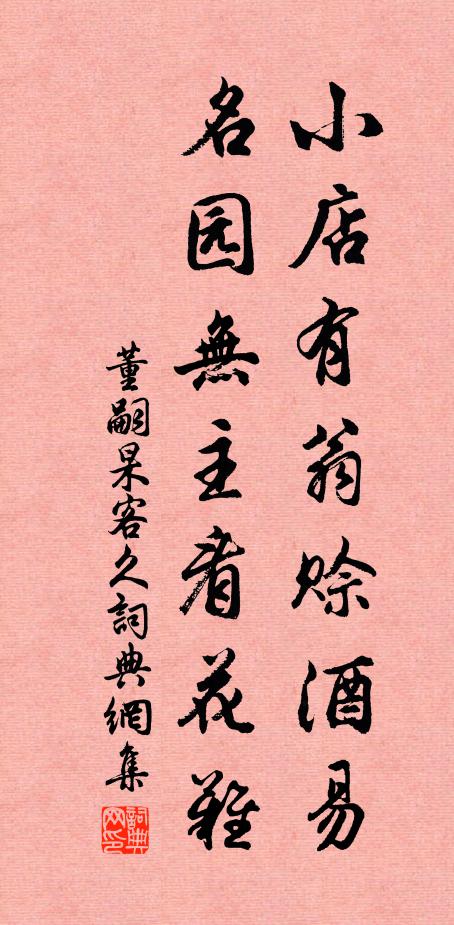 小店有翁赊酒易
名园無主看花難
董嗣杲客久詞典網集
詞典网印